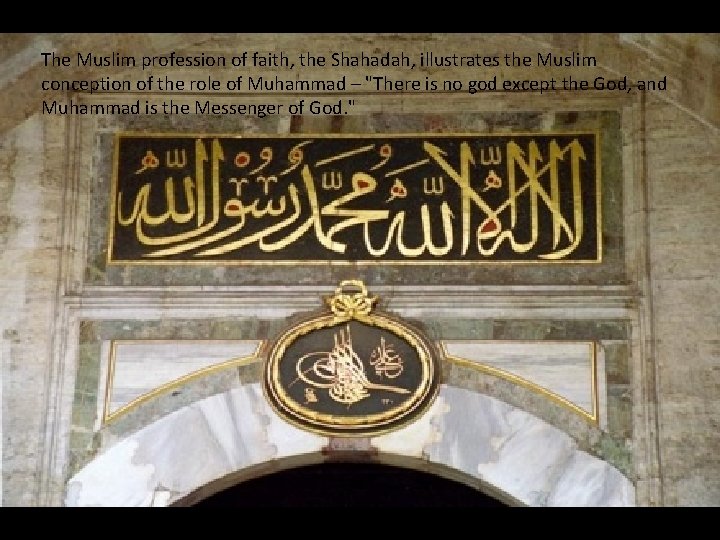 The Muslim profession of faith, the Shahadah, illustrates the Muslim
conception of the role of Muhammad – "There is no god except the God, and
Muhammad is the Messenger of God."
لا إله إلا الله محمد رسول الله